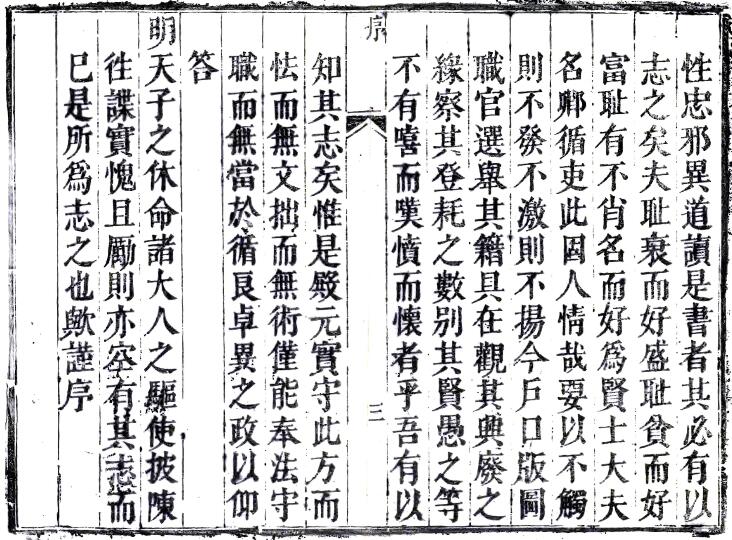 性忠邪異道讀是書者其必有以
志之矣夫耻衰而好盛耻貧而好
富耻有不肖名而好爲賢士大夫
名鄉循吏此因人情哉要以不觸
則不發不激則不揚今戶口版圖
職官選舉其籍具在觀其興廢之
緣察其登耗之數別其賢愚之等
不有嘻而嘆憤而懷者乎吾有以
序
三
知其志矣惟是毀元實守此方而
怯而無文拙而無術僅能奉法守
職而無當於循良卓異之政以仰
答
明天子之休命諸大人之驅使披陳
徃諜實愧且勵則亦空有其志而
已是所爲志之也歟謹序